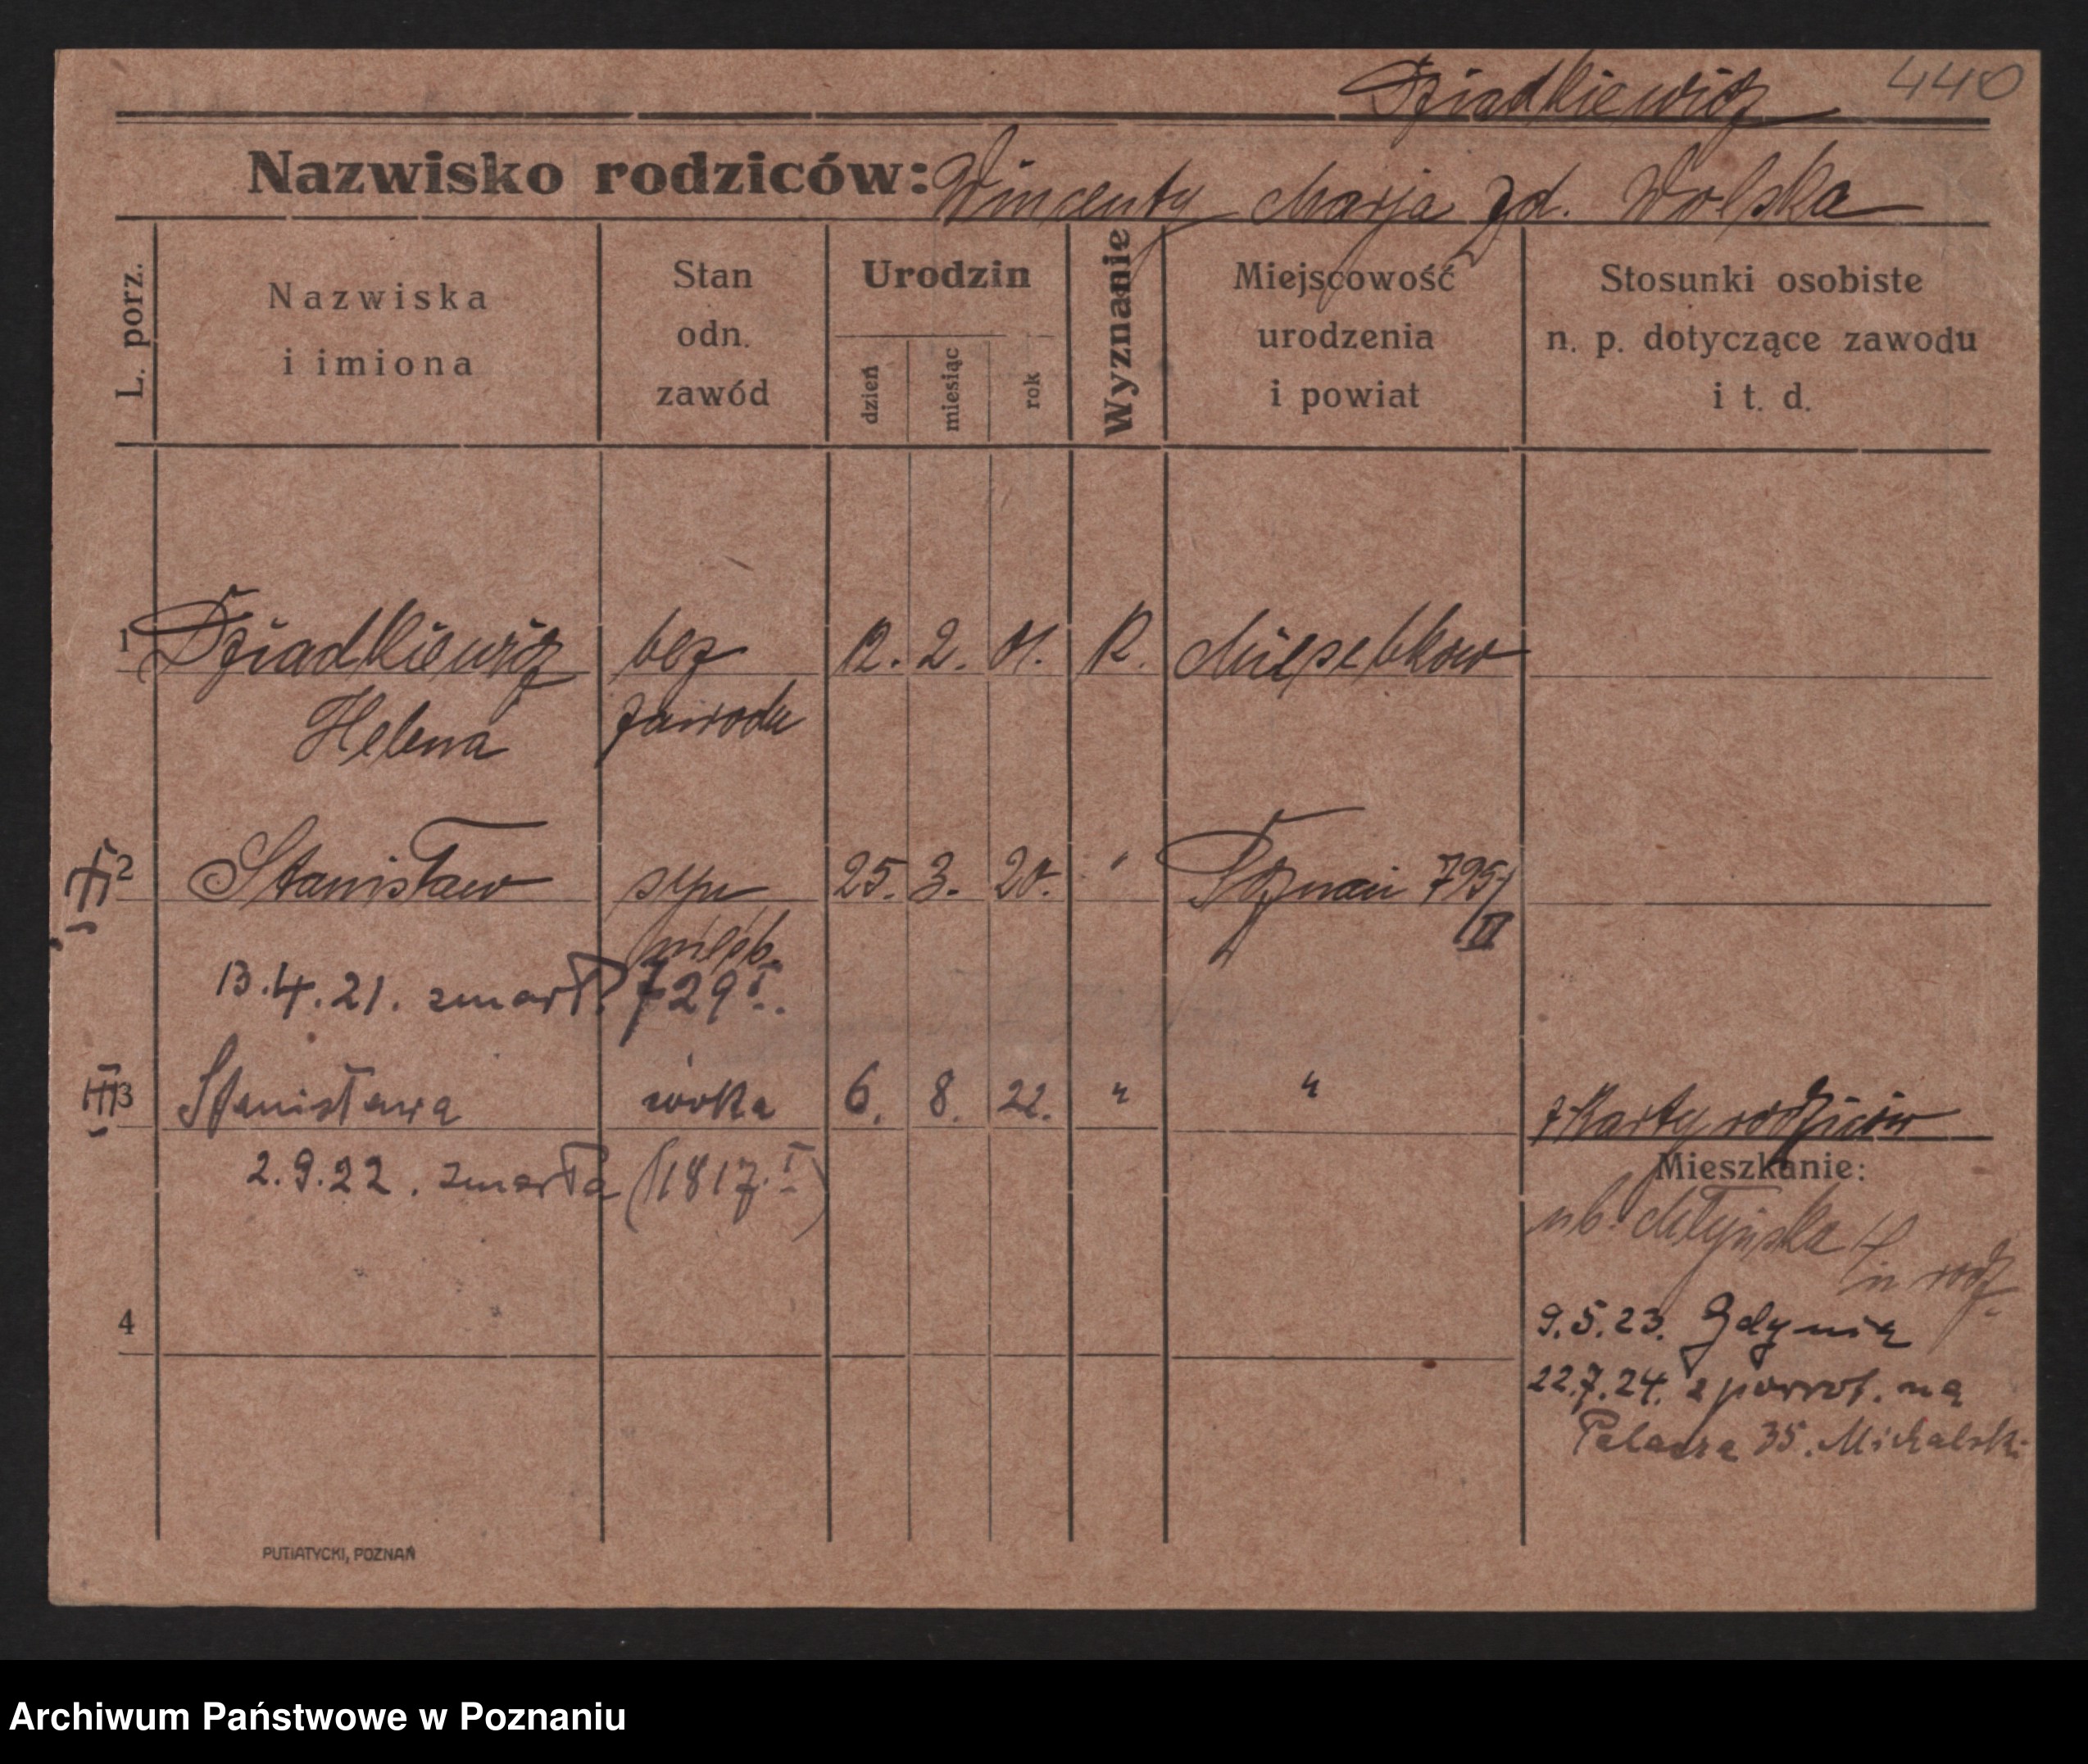 Dziadkiewicz 440
Nazwisko rodziców: Wincenty Marja zd. Wolska
L. porz.
Nazwiska
i imiona
Stan
odn.
zawód
Urodzin
dzień
miesiąc
rok
Wyznanie
Miejscowość
urodzenia
i powiat
Stosunki osobiste
n. p. dotyczące zawodu
i t. d.
1 Dziadkiewicz bez 12. 2. 01. R.
Helena zawodu
2 Stanisław syn 25. 3. 20. " Poznań 795/
nieśl. II
13.4.21. zmarł. 729 I.
3 Stanisława córka 6. 8. 22. " "
z Karty rodziców
2.9.22. zmarła (1817.I)
Mieszkanie:
Młyńska
rodz.
4
9.5.23. Gdynia
22.7.24. z powrot. na
35. Michalski
PUTIATYCKI, POZNAŃ
Archiwum Państwowe w Poznaniu